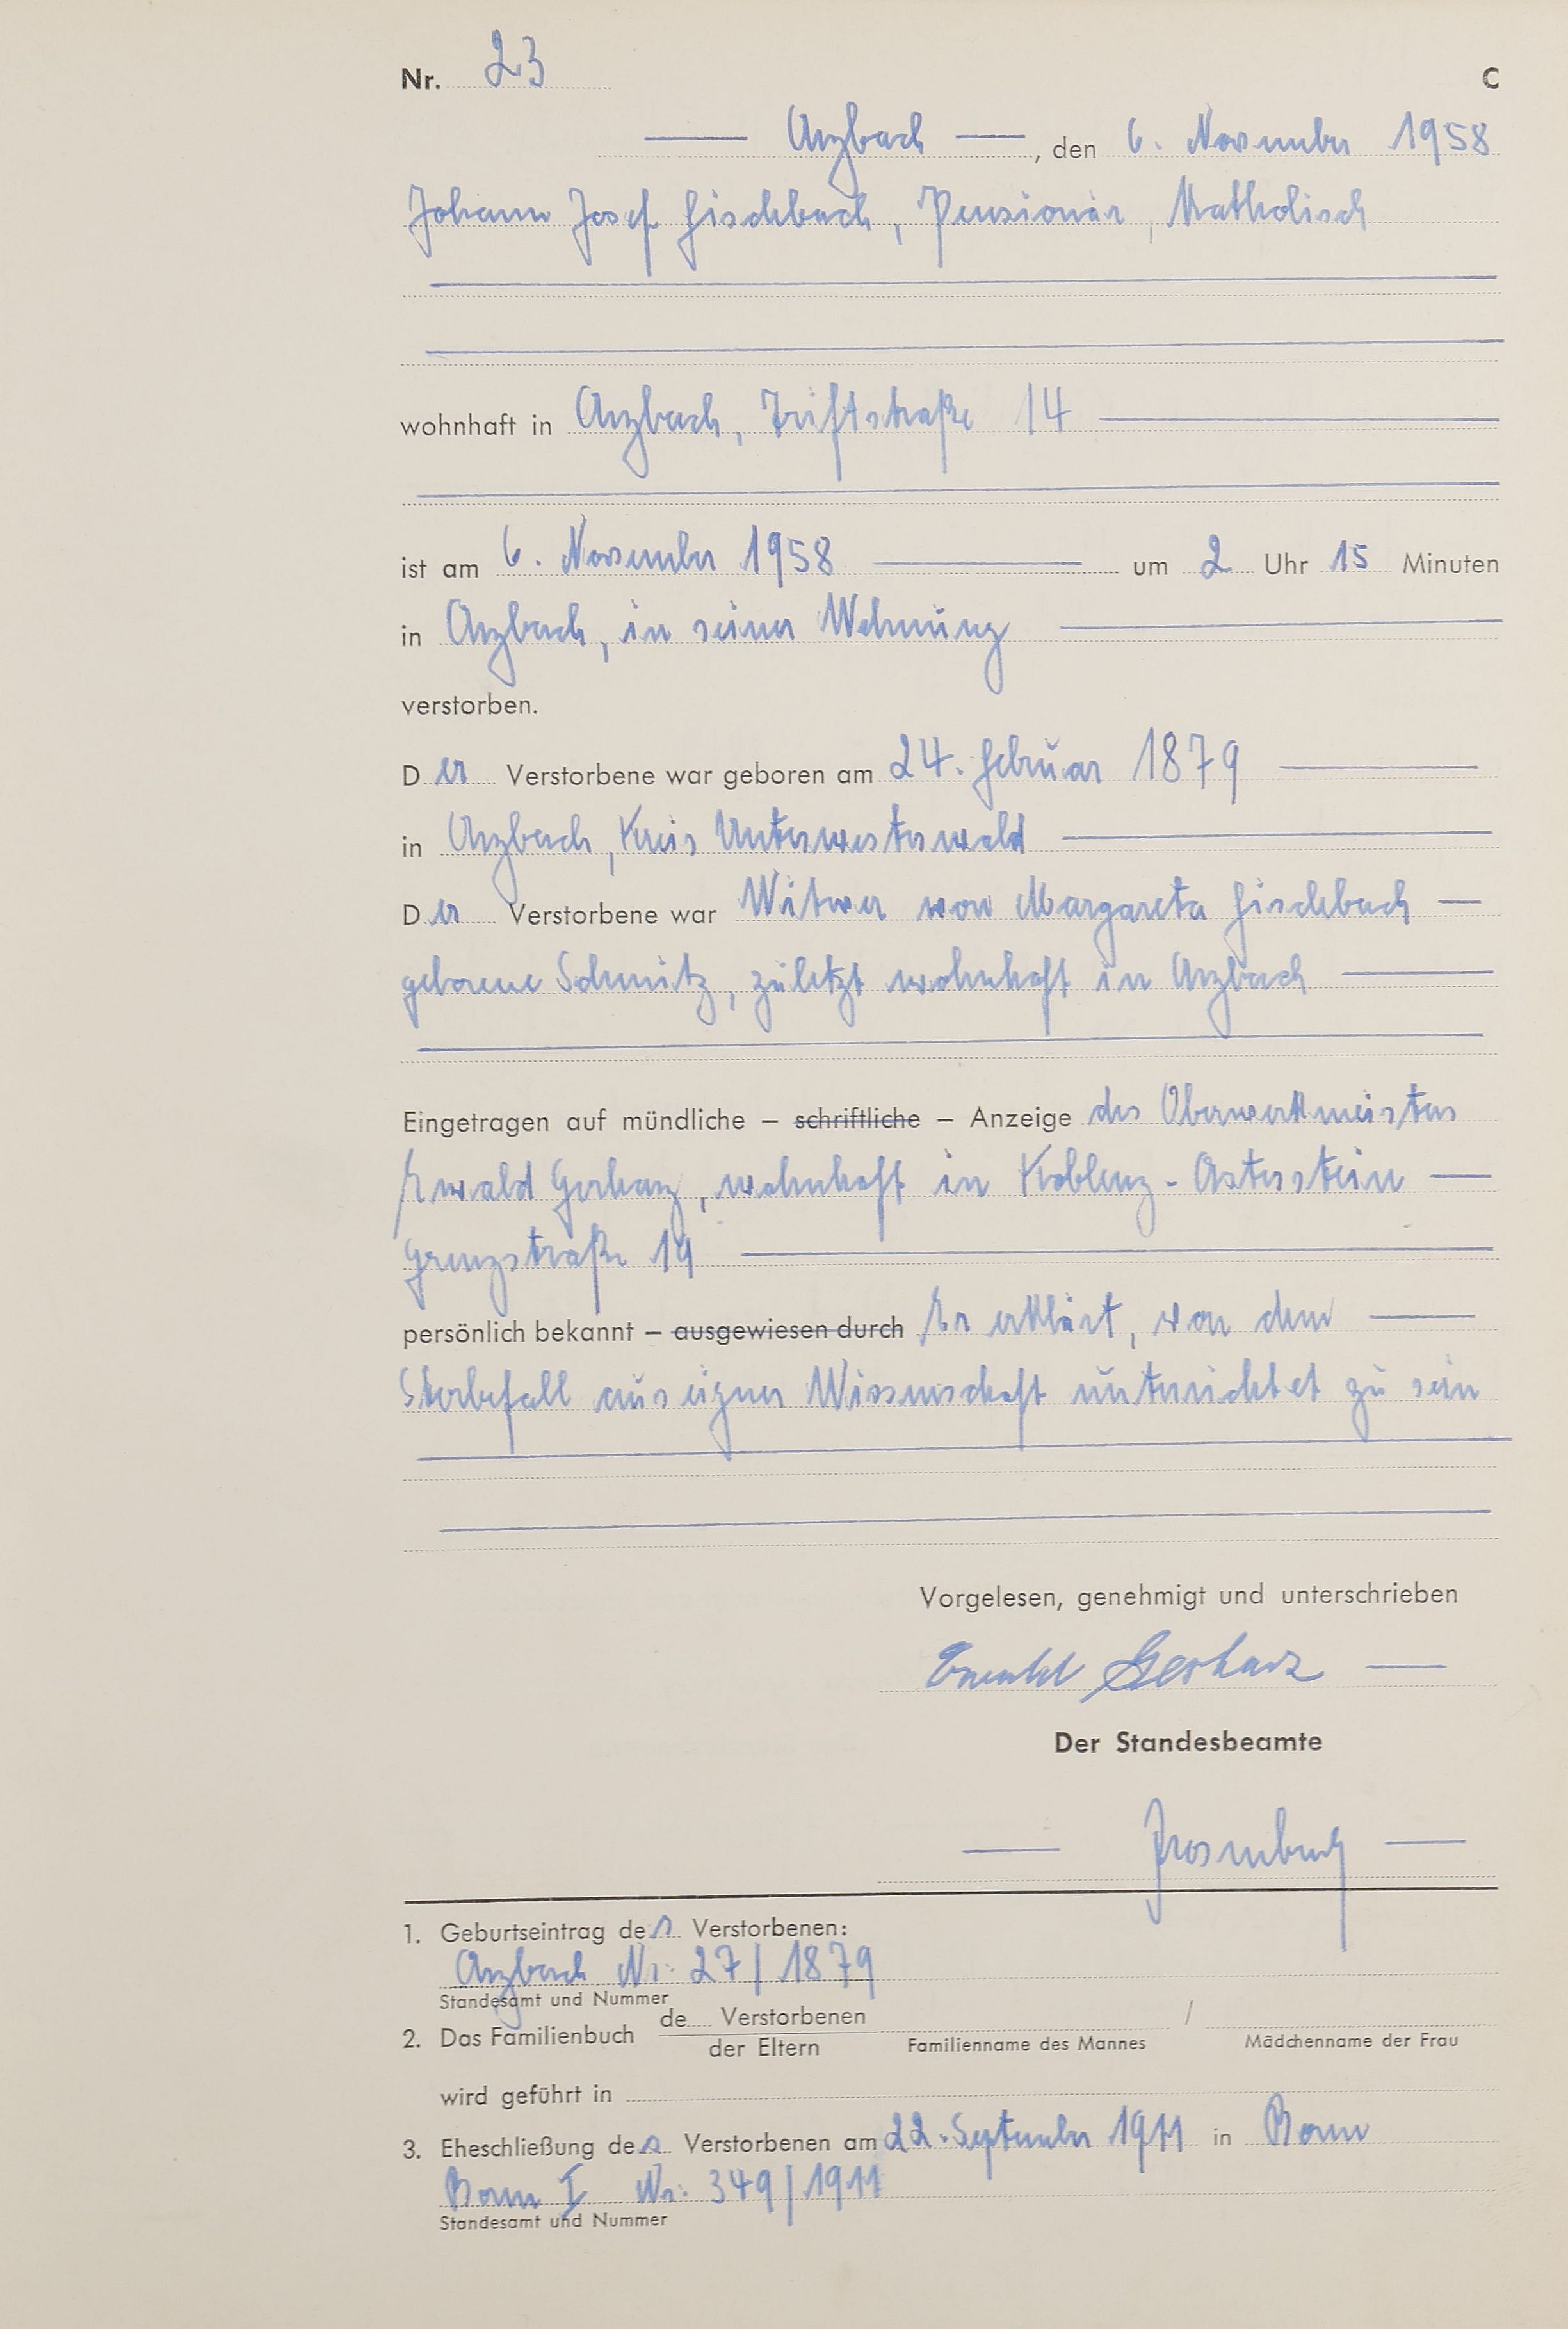 Nr. 23 C
Arzbach, den 6. November 1958
Johann Josef Fischbach, Pensionär, Katholisch
wohnhaft in Arzbach, Triftstraße 14
ist am 6. November 1958 um 2 Uhr 15 Minuten
in Arzbach, in seiner Wohnung
verstorben.
Der Verstorbene war geboren am 24. Februar 1879
in Arzbach, Kreis Unterwesterwald
Der Verstorbene war Witwer von Margareta Fischbach
geborene Schmitz, zuletzt wohnhaft in Arzbach
Eingetragen auf mündliche – schriftliche – Anzeige des Oberwerkmeisters
Ewald Gerharz, wohnhaft in Koblenz-Asterstein
Grenzstraße 19
persönlich bekannt – ausgewiesen durch Er erklärt, von dem
Sterbefall aus eigner Wissenschaft unterrichtet zu sein
Vorgelesen, genehmigt und unterschrieben
Ewald Gerharz
Der Standesbeamte
1. Geburtseintrag des Verstorbenen:
Arzbach Nr. 27/1879
Standesamt und Nummer
2. Das Familienbuch de Verstorbenen / der Eltern
Familienname des Mannes Mädchenname der Frau
wird geführt in
3. Eheschließung des Verstorbenen am 22. September 1911 in Bonn
Bonn I Nr. 349/1911
Standesamt und Nummer